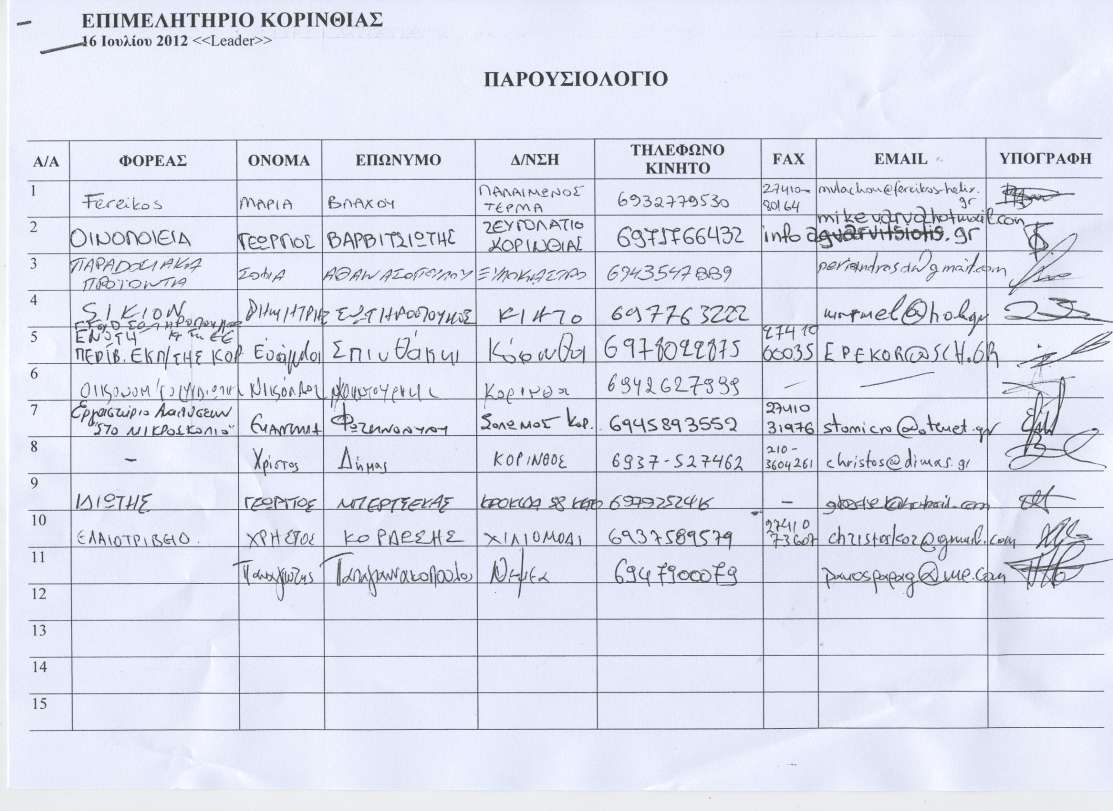 ΕΠΙΜΕΛΗΤΗΡΙΟ ΚΟΡΙΝΘΙΑΣ
16 Ιουλίου 2012 <<Leader>>
ΠΑΡΟΥΣΙΟΛΟΓΙΟ
Α/Α ΦΟΡΕΑΣ ΟΝΟΜΑ ΕΠΩΝΥΜΟ Δ/ΝΣΗ ΤΗΛΕΦΩΝΟ ΚΙΝΗΤΟ FAX EMAIL ΥΠΟΓΡΑΦΗ
1 Fereikos ΜΑΡΙΑ ΒΛΑΧΟΥ ΠΑΛΑΙΜΕΝΟΣ ΤΕΡΜΑ 6932779530 27410-80164 mvlachou@fereikos-helix.gr
2 ΟΙΝΟΠΟΙΕΙΑ ΓΕΩΡΓΙΟΣ ΒΑΡΒΙΤΣΙΩΤΗΣ ΖΕΥΓΟΛΑΤΙΟ ΚΟΡΙΝΘΙΑΣ 6975766432 mikevarva@hotmail.com
3 ΠΑΡΑΔΟΣΙΑΚΑ ΠΡΟΪΟΝΤΑ ΣΟΦΙΑ ΑΘΑΝΑΣΟΠΟΥΛΟΥ ΞΥΛΟΚΑΣΤΡΟ 6943547889
4 SIKION ΔΗΜΗΤΡΗΣ ΣΩΤΗΡΟΠΟΥΛΟΣ ΚΙΑΤΟ 6977763222
5 ΠΕΡΙΒ. ΕΚΠ/ΣΗΣ ΚΟΡ Σπινθάκη Κόρινθο 6978022875 27410 60035 EPEKOR@SCH.GR
6 Νικόλαος Κορινθο 6942627939 –
7 Εργαστήριο Αναλύσεων "ΣΤΟ ΜΙΚΡΟΣΚΟΠΙΟ" ΣΟΛΩΜΟΣ ΚΟΡ. 6945893552 27410 31976 stomicro@otenet.gr
8 – Χρίστος Δήμας ΚΟΡΙΝΘΟΣ 6937-527462 210-3604261 christos@dimas.gr
9 ΙΔΙΩΤΗΣ ΓΕΩΡΓΙΟΣ ΜΠΕΡΤΣΕΚΑΣ 6979252416 –
10 ΕΛΑΙΟΤΡΙΒΕΙΟ. ΧΡΗΣΤΟΣ ΚΟΡΔΕΣΗΣ ΧΙΛΙΟΜΟΔΙ 6937589579 27410 73607 christoskor2@gmail.com
11 Παναγιώτης Παπαγιαννακόπουλος Νεμέα 6947900079 panospapag@me.com
12
13
14
15